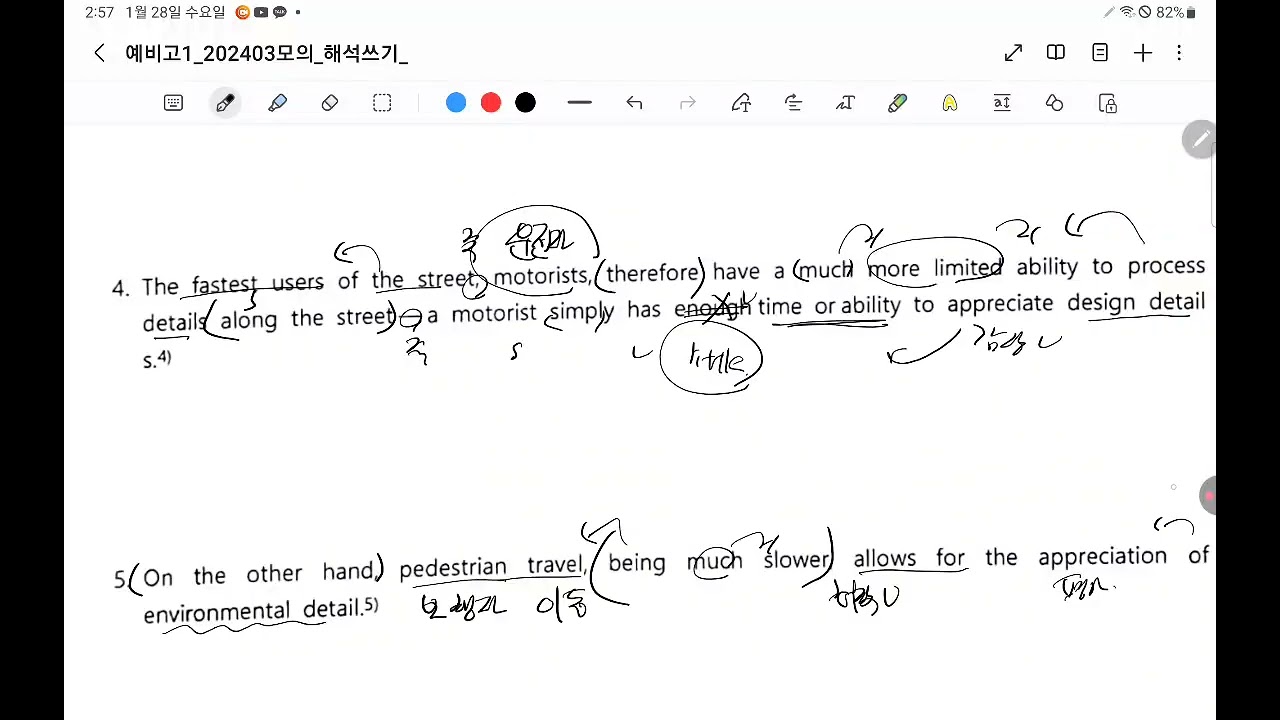 2:57 1월 28일 수요일 82%
예비고1_202403모의_해석쓰기_
즉 운전자
4. The fastest users of the street, motorists, (therefore) have a (much) more limited ability to process
details (along the street) — a motorist (simply) has enough time or ability to appreciate design detail
s.4)
즉 s v little 감상 v
5. (On the other hand,) pedestrian travel, (being much slower) allows for the appreciation of
environmental detail.5)
보행자 이동 허용 v